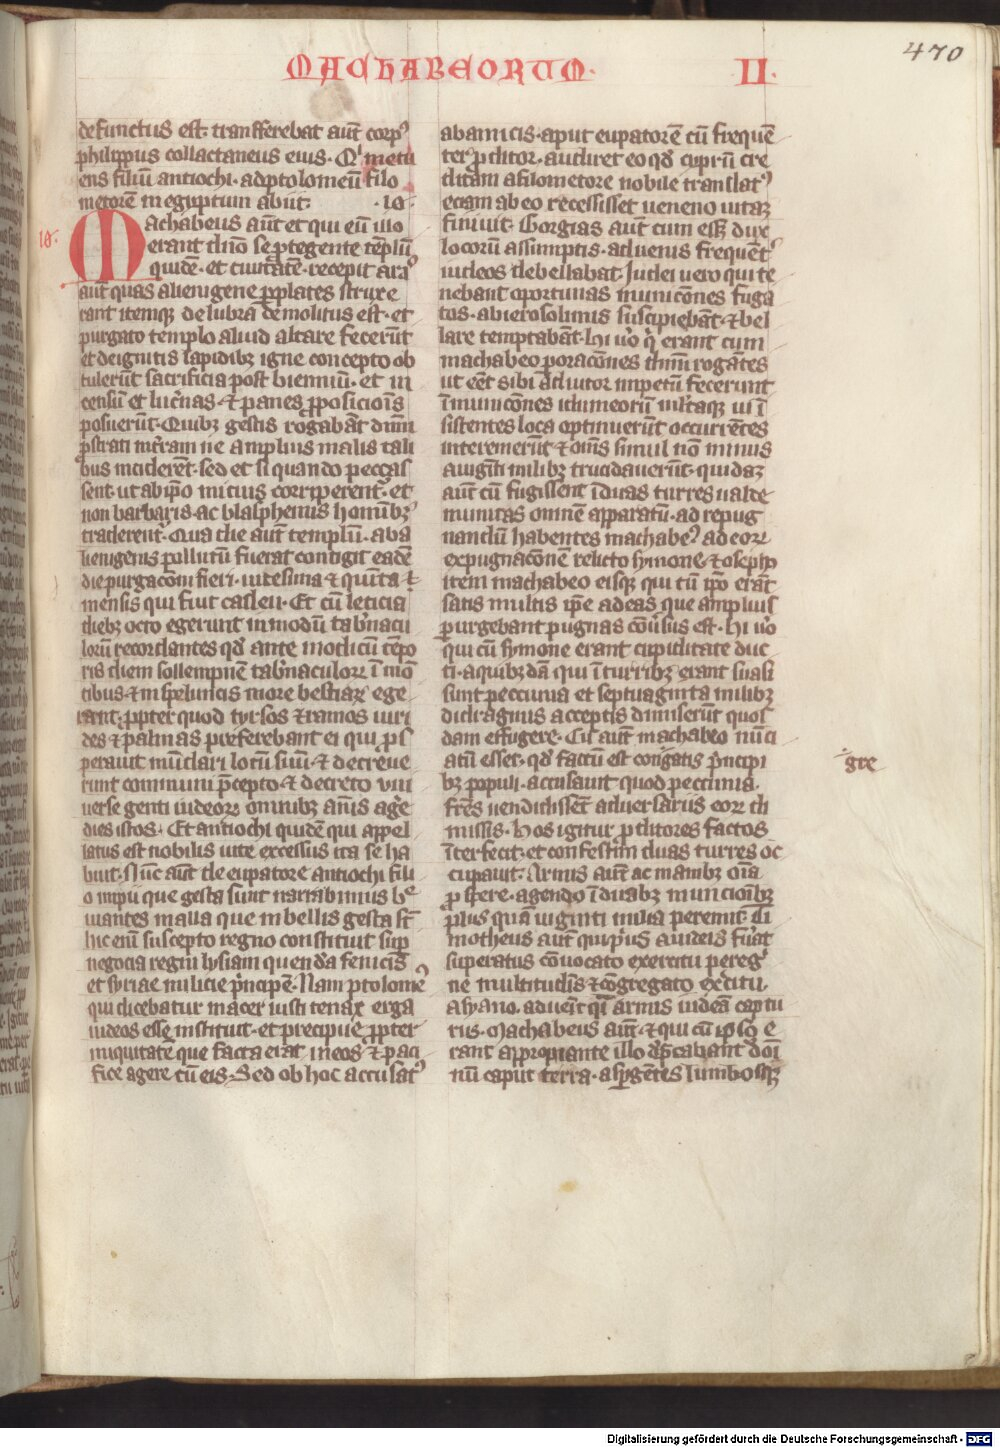 MACHABEORUM · II ·
470
defunctus est· transferebat aūt corpꝰ
philippus collactaneus eius· Qͥ metu
ens filiū antiochi· ad ptolomeū filo
metorē in egyptum abiit· ·10·
10· Machabeus aūt et qui eū illo
erant dn̄o se ꝓtegente tēplū
quidē· et ciuitatē· recepit arāͣ
aūt quas alienigene ꝑ plateas struxe
rant itemqꝫ delubra demolitus est· et
purgato templo aliud altare fecerūt
et de ignitis lapidibꝫ igne concepto ob
tulerūt sacrificia post bienniū· et in
censū et luc̄nas· ⁊ panes ꝓposicioīs
posuerūt· Quibꝫ gestis rogabāt dn̄m
ꝓstrati in t̄ram ne amplius malis tali
bus inciderēt· sed et si quando peccas
sent· ut ab ip̄o micius corriperent᷑· et
non barbaris· ac blasphemis hominibꝫ
traderent᷑· Qua die aūt templū· ab a
lienigenis pollutū fuerat contigit eadē
die purgacōm fieri· uicesima ⁊ quīta
mensis qui fuit casleu· Et cū leticia
diebꝫ octo egerunt in modū tab̄nacu
lorū recordantes qd̄ ante modicū tēpo
ris diem sollempnē tab̄naculoꝝ ī mō
tibus ⁊ in speluncis more bestiaꝝ ege
rant· ꝓpter quod tyrsos ⁊ ramos uiri
des ⁊ palmas preferebant ei qui ꝓs
perauit mūdari locū suū· ⁊ decreue
runt communi p̄cepto· ⁊ decreto uni
uerse genti iudeoꝝ omnibꝫ annis agē
dies istos· Et antiochi quidē qui appel
latus est nobilis uite excessus ita se ha
buit· Nunc aūt de eupatore antiochi fili
o impii que gesta sunt narrabimus bͤe
uiantes mala que in bellis gesta sūt
hic enī suscepto regno constituit sup
negocia regni lysiam quendā fenicis
et syriae milicie pͥncipē· Nam ptolomeꝰ
qui dicebatur macer iusti tenax erga
iudeos esse instituit· et precipue ꝓpter
iniquitatē que facta erat in eos ⁊ paci
fice agere cū eis· Sed ob hoc accusatꝰ
ab amicis· aput eupatorē cū frequē
ter ꝓditor· audiret eo qd̄ cyprū cre
ditam a filometore nobile translatꝰ
eciam ab eo recessisset ueneno uitaꝫ
finiuit· Gorgias aūt cum essꝫ dux
locorū assumptis· aduenis frequēt᷑
iudeos debellabat· Judei uero qui te
nebant oportunas municōnes fuga
tos· ab ierosolimis suscipiebāt· ⁊ bel
lare temptabāt· Hi ūo q̄ erant cum
machabeo ꝑ oracōnes dn̄m rogātes
ut eēt sibi adiutor impetū fecerunt
ī municōnes idumeorū mltaqꝫ ui ī
sistentes loca optinuerūt occurrētes
interemerūt ⁊ om̄s simul nō minus
a uigīti milibꝫ trucidauerūt· quidaꝫ
aūt cū fugissent ī duas turres ualde
munitas omnē apparatū· ad repug
nandū habentes machabeꝰ ad eoꝝ
expugnacōnē relicto symone ⁊ ioseph
item machabeo eisqꝫ qui cū ip̄o erāt
satis multis ip̄e ad eas que amplius
ꝑurgebant pugnas cōuersus est· Hi ūo
qui cū symone erant cupiditate duc
ti· a quibꝫdā qui ī turribꝫ erant suasi
sunt peccunia et septuaginta milibꝫ
didragmis acceptis dimiserūt quos
dam effugere· Cū aūt machabeo nūci
atū esset· qd̄ factū est cōgātis pͥncipi
bꝫ populi· accusauit quod peccunia
fr̄es uendidissēt aduersariis eoꝝ di
missis· Hos igitur ꝓditores factos
īterfecit· et confestim duas turres oc
cupauit· Armis aūt ac manibꝫ om̄ia
ꝓspere· agendo ī duabꝫ municionibꝫ
plus quā uiginti milia peremit· Ti
motheus aūt qui pͥus a iudeis fūat
superatus cōuocato exercitu peregͥ
ne multitudīs ⁊ cōgregato exꝑcitu·
asyano· aduēit qͣi armis iudeā captu
rus· Machabeus aūt· ⁊ qui cū ip̄o e
rant appropiante illo dep̄cabant᷑ dom̄i
nū caput terra· aspgētes lumbosqꝫ
gre
Digitalisierung gefördert durch die Deutsche Forschungsgemeinschaft - DFG